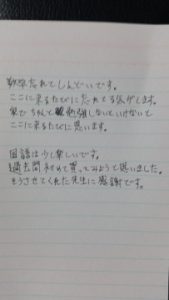 数学忘れてしんどいです。
ここに来るたびに忘れてる気がします。
家でちゃんと勉強しないといけないと
ここに来るたびに思います。
国語は少し楽しいです。
過去問初めて買ってみようと思いました。
そうさせてくれた先生に感謝です。